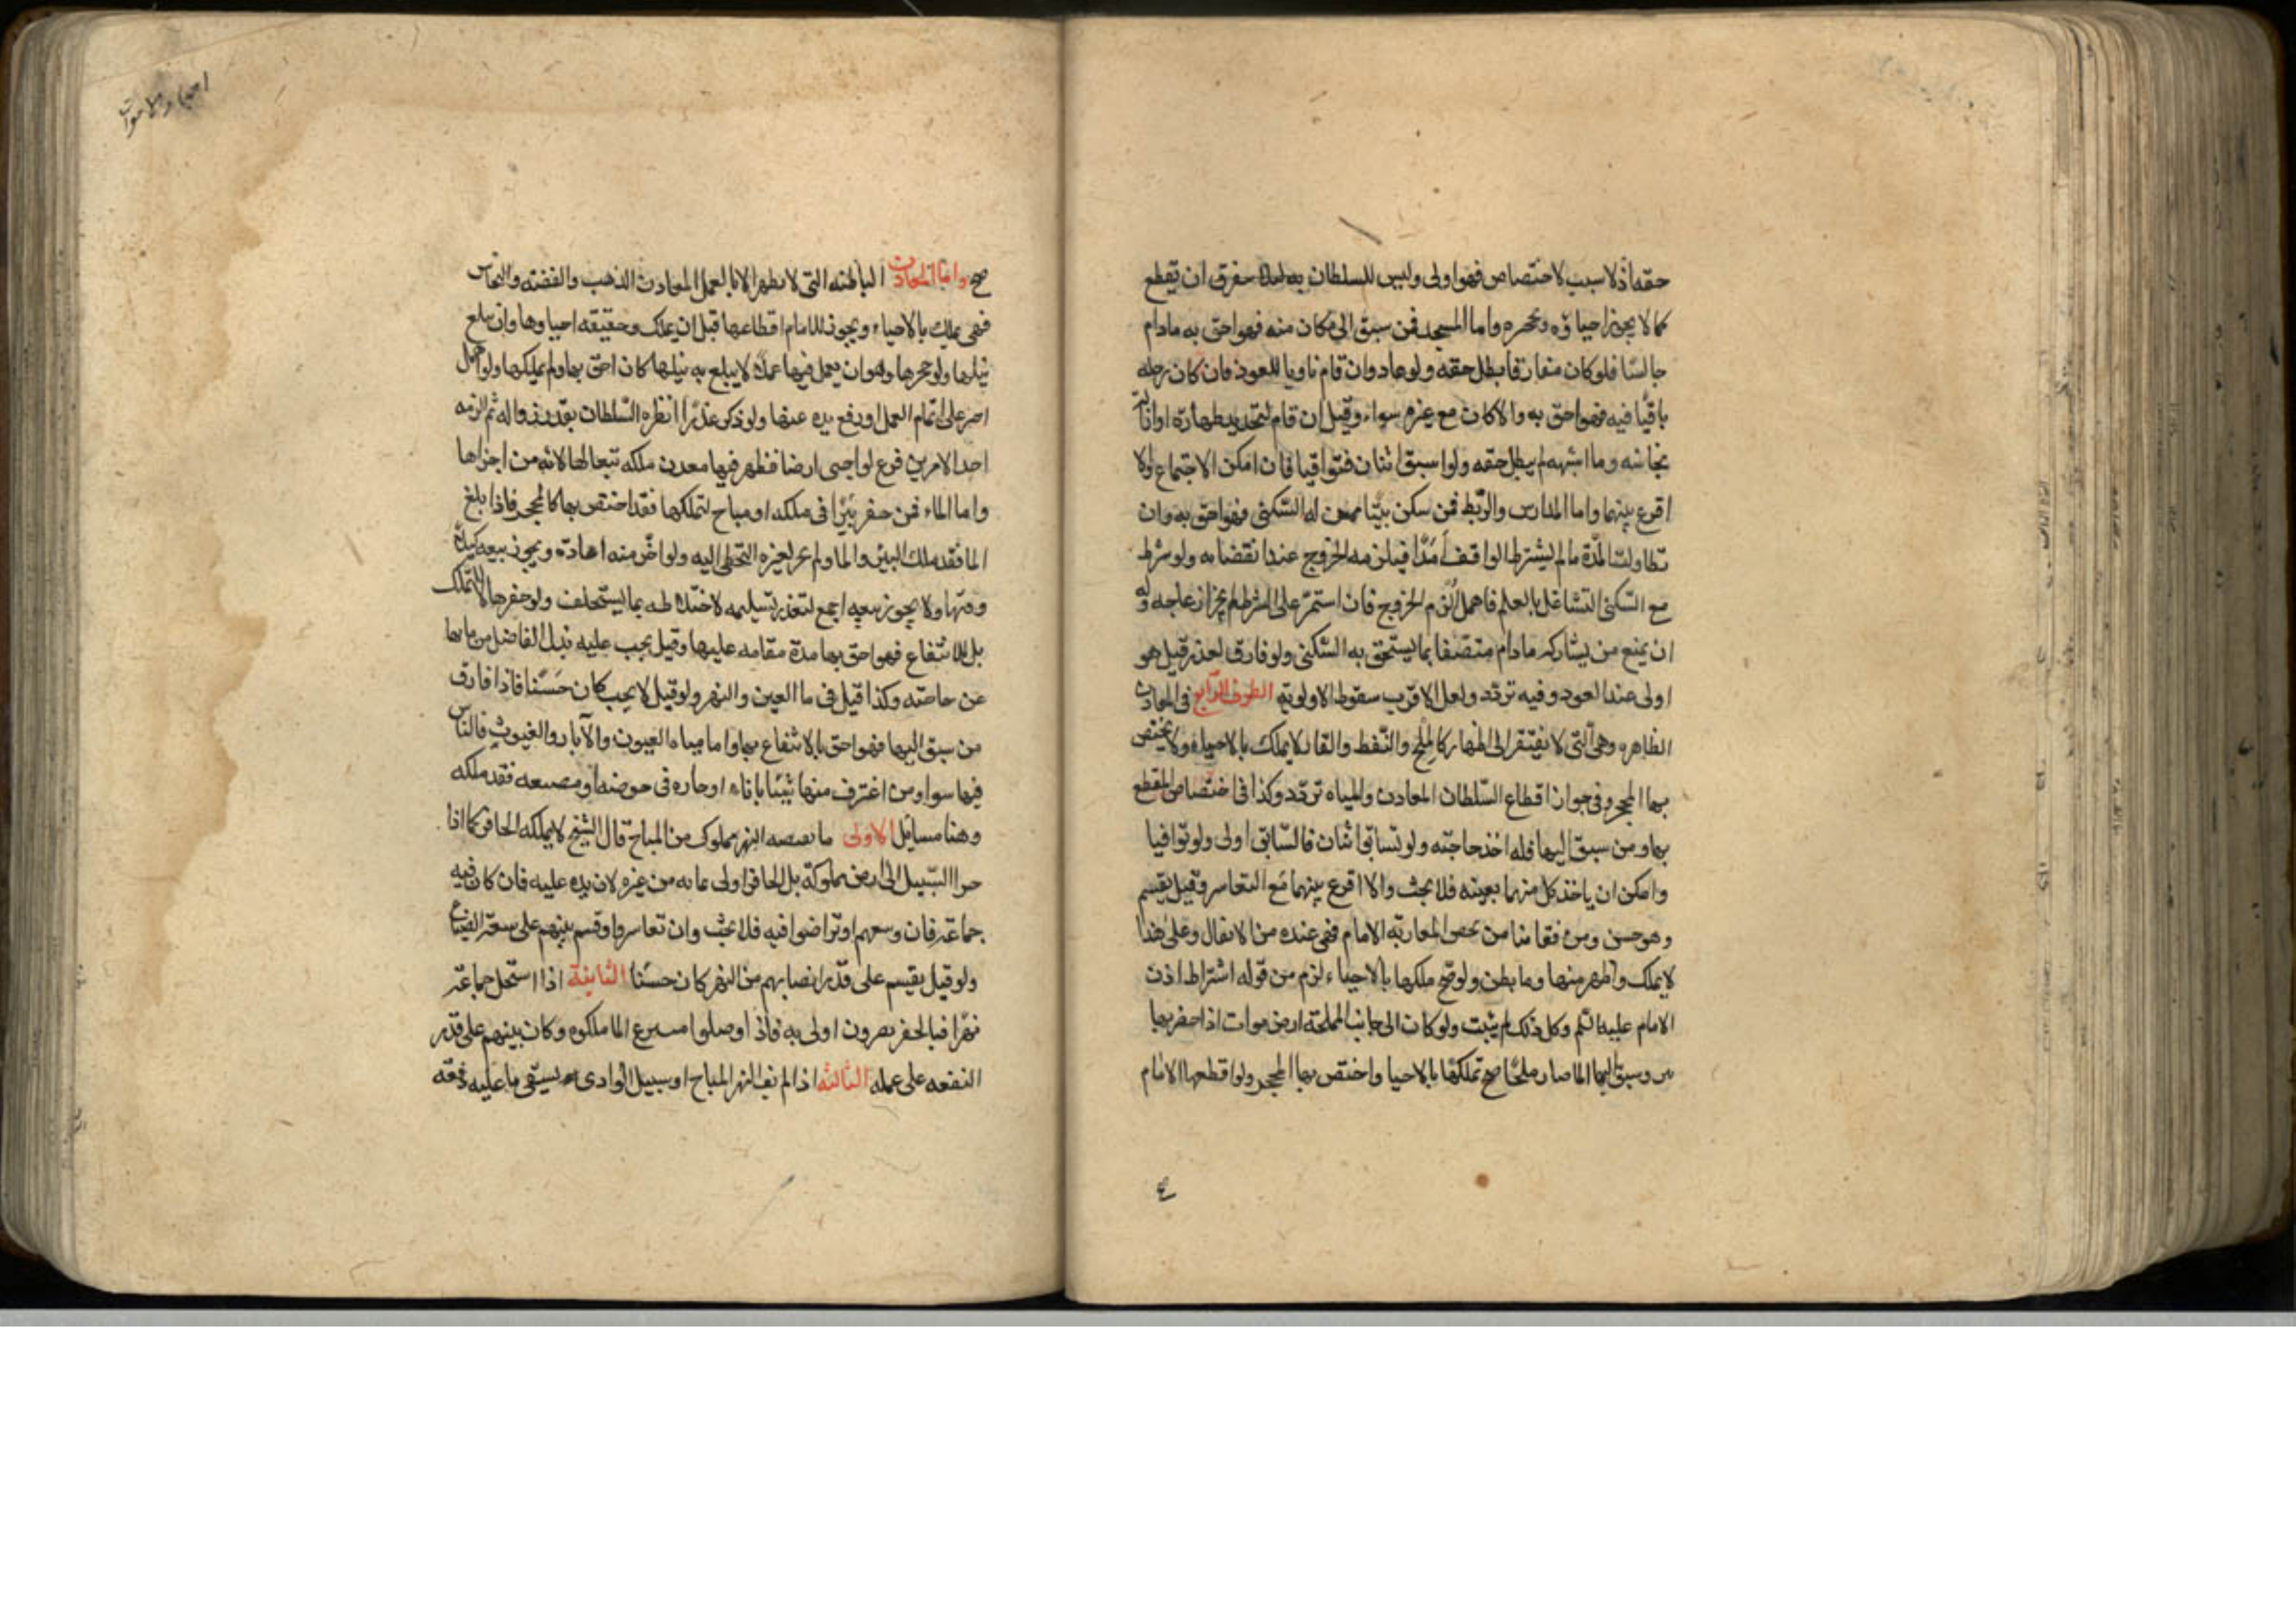 حقه اذ لا سبب لاختصاص فهو اولى وليس للسلطان ان يقطع
كما لا يجوز احياؤه و تحجره واما المسجد فمن سبق الى مكان منه فهو احق به مادام
جالسا فلو كان مفارقا بطل حقه ولو عاد وان قام ناويا للعود فان كان رحله
باقيا فيه فهو احق به والا كان مع غيره سواء وقيل ان قام لتجديد طهارة او ازالة
نجاسة وما اشبهه لم يبطل حقه ولو استبق اثنان فتوافيا فان امكن الاجتماع والا
اقرع بينهما واما المدارس والربط فمن سكن بيتا ممن له السكنى فهو احق به وان
تطاولت المدة ما لم يشترط الواقف امدا فيلزمه الخروج عند انقضائه ولو شرط
مع السكنى التشاغل بالعلم فاهمل الزم الخروج فان استمر على الشرط لم يجز ازعاجه وله
ان يمنع من يشاركه مادام متصفا بما يستحق به السكنى ولو فارق لعذر قيل هو
اولى عند العود وفيه تردد ولعل الاقرب سقوط الاولوية الطرف الرابع في المعادن
الظاهره وهي التي لا يفتقر الى اظهار كالملح والنفط والقار لا يملك بالاحياء ولا يختص
بها المحجر وفي جواز اقطاع السلطان المعادن والمياه تردد وكذا في اختصاص المقطع
بها ومن سبق اليها فله اخذ حاجته ولو تسابق اثنان فالسابق اولى ولو توافيا
وامكن ان ياخذ كل منهما بغيته فلا بحث والا اقرع بينهما مع التعاسر وقيل يقسم
وهو حسن ومن فقهائنا من يخص المعادن به الامام فهي عنده من الانفال وعلى هذا
لا يملك ما ظهر منها وما بطن ولو صح ملكها بالاحياء لزم من قوله اشتراط اذن
الامام عليه السلم وكل ذلك لم يثبت ولو كان الى جانب المملحة ارض موات اذا حفر بها
بئر وسيق اليها الما صار ملحا صح تملكها بالاحيا واختص بها المحجر ولو اقطعها الامام
ع
احياء الاموات
صح واما المعادن الباطنه التي لا تظهر الا بالعمل المعادن الذهب والفضه والنحاس
فهي تملك بالاحياء ويجوز للامام اقطاعها قبل ان يملك وحقيقه احياوها وان يبلغ
نيلها ولو حجرها وهو ان يعمل فيها عملا لا يبلغ به نيلها كان احق بها ولم يملكها ولو اهمل
اجبر على اتمام العمل او رفع يده عنها ولو ذكر عذرا انظره السلطان بقدر زواله ثم الزمه
احد الامرين فرع لو احيى ارضا فظهر فيها معدن ملكه تبعا لها لانه من اجزاها
واما الماء فمن حفر بئرا في ملكه او مباح لتملكها فقد اختص بها كالمحجر فاذا بلغ
الما فقد ملك البئر والما ولم يجز لغيره التخطي اليه ولو اخذ منه اعاده ويجوز بيعه كيلا
ووزنا ولا يجوز بيعه اجمع لتعذر تسليمه لاختلاطه بما يستخلف ولو حفرها لا للتملك
بل للانتفاع فهو احق بها مدة مقامه عليها وقيل يجب عليه بذل الفاضل من مائها
عن حاجته وكذا قيل في ما العين والنهر ولو قيل لا يجب كان حسنا فاذا فارق
من سبق اليها فهو احق بالانتفاع بها واما مياه العيون والآبار والغيوث فالناس
فيها سوا ومن اغترف منها شيئا باناء او حازه في حوضه او مصنعه فقد ملكه
وهنا مسائل الاولى ما يفيضه النهر المملوك من المباح قال الشيخ لا يملكه الحافر كما اذا
جرا السيل الى ارض مملوكة بل الحافر اولى بمائه من غيره لان يده عليه فان كان فيه
جماعة فان وسعهم او تراضوا فيه فلا بحث وان تعاسروا قسم بينهم على سعة الضياع
ولو قيل يقسم على قدر انصبائهم من النهر كان حسنا الثانية اذا استجد جماعة
نهرا فبالحفر يصيرون اولى به فاذا اوصلوا منتزع الما ملكوه وكان بينهم على قدر
النفقه على عمله الثالثه اذا لم يف النهر المباح او سيل الوادي بسقي ما عليه دفعه